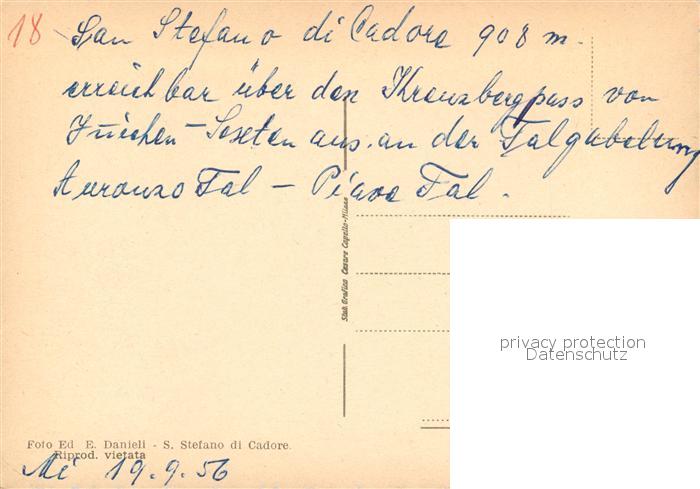 18 San Stefano di Cadore 908 m.
erreichbar über den Kreuzbergpass von
Jnichen - Sexten aus. an der Talgabelung
Auronzo Tal - Piave Tal.
Stab. Grafico Cesare Capello - Milano
privacy protection
Datenschutz
Foto Ed E. Danieli - S. Stefano di Cadore.
Riprod. vietata
Mi 19.9.56